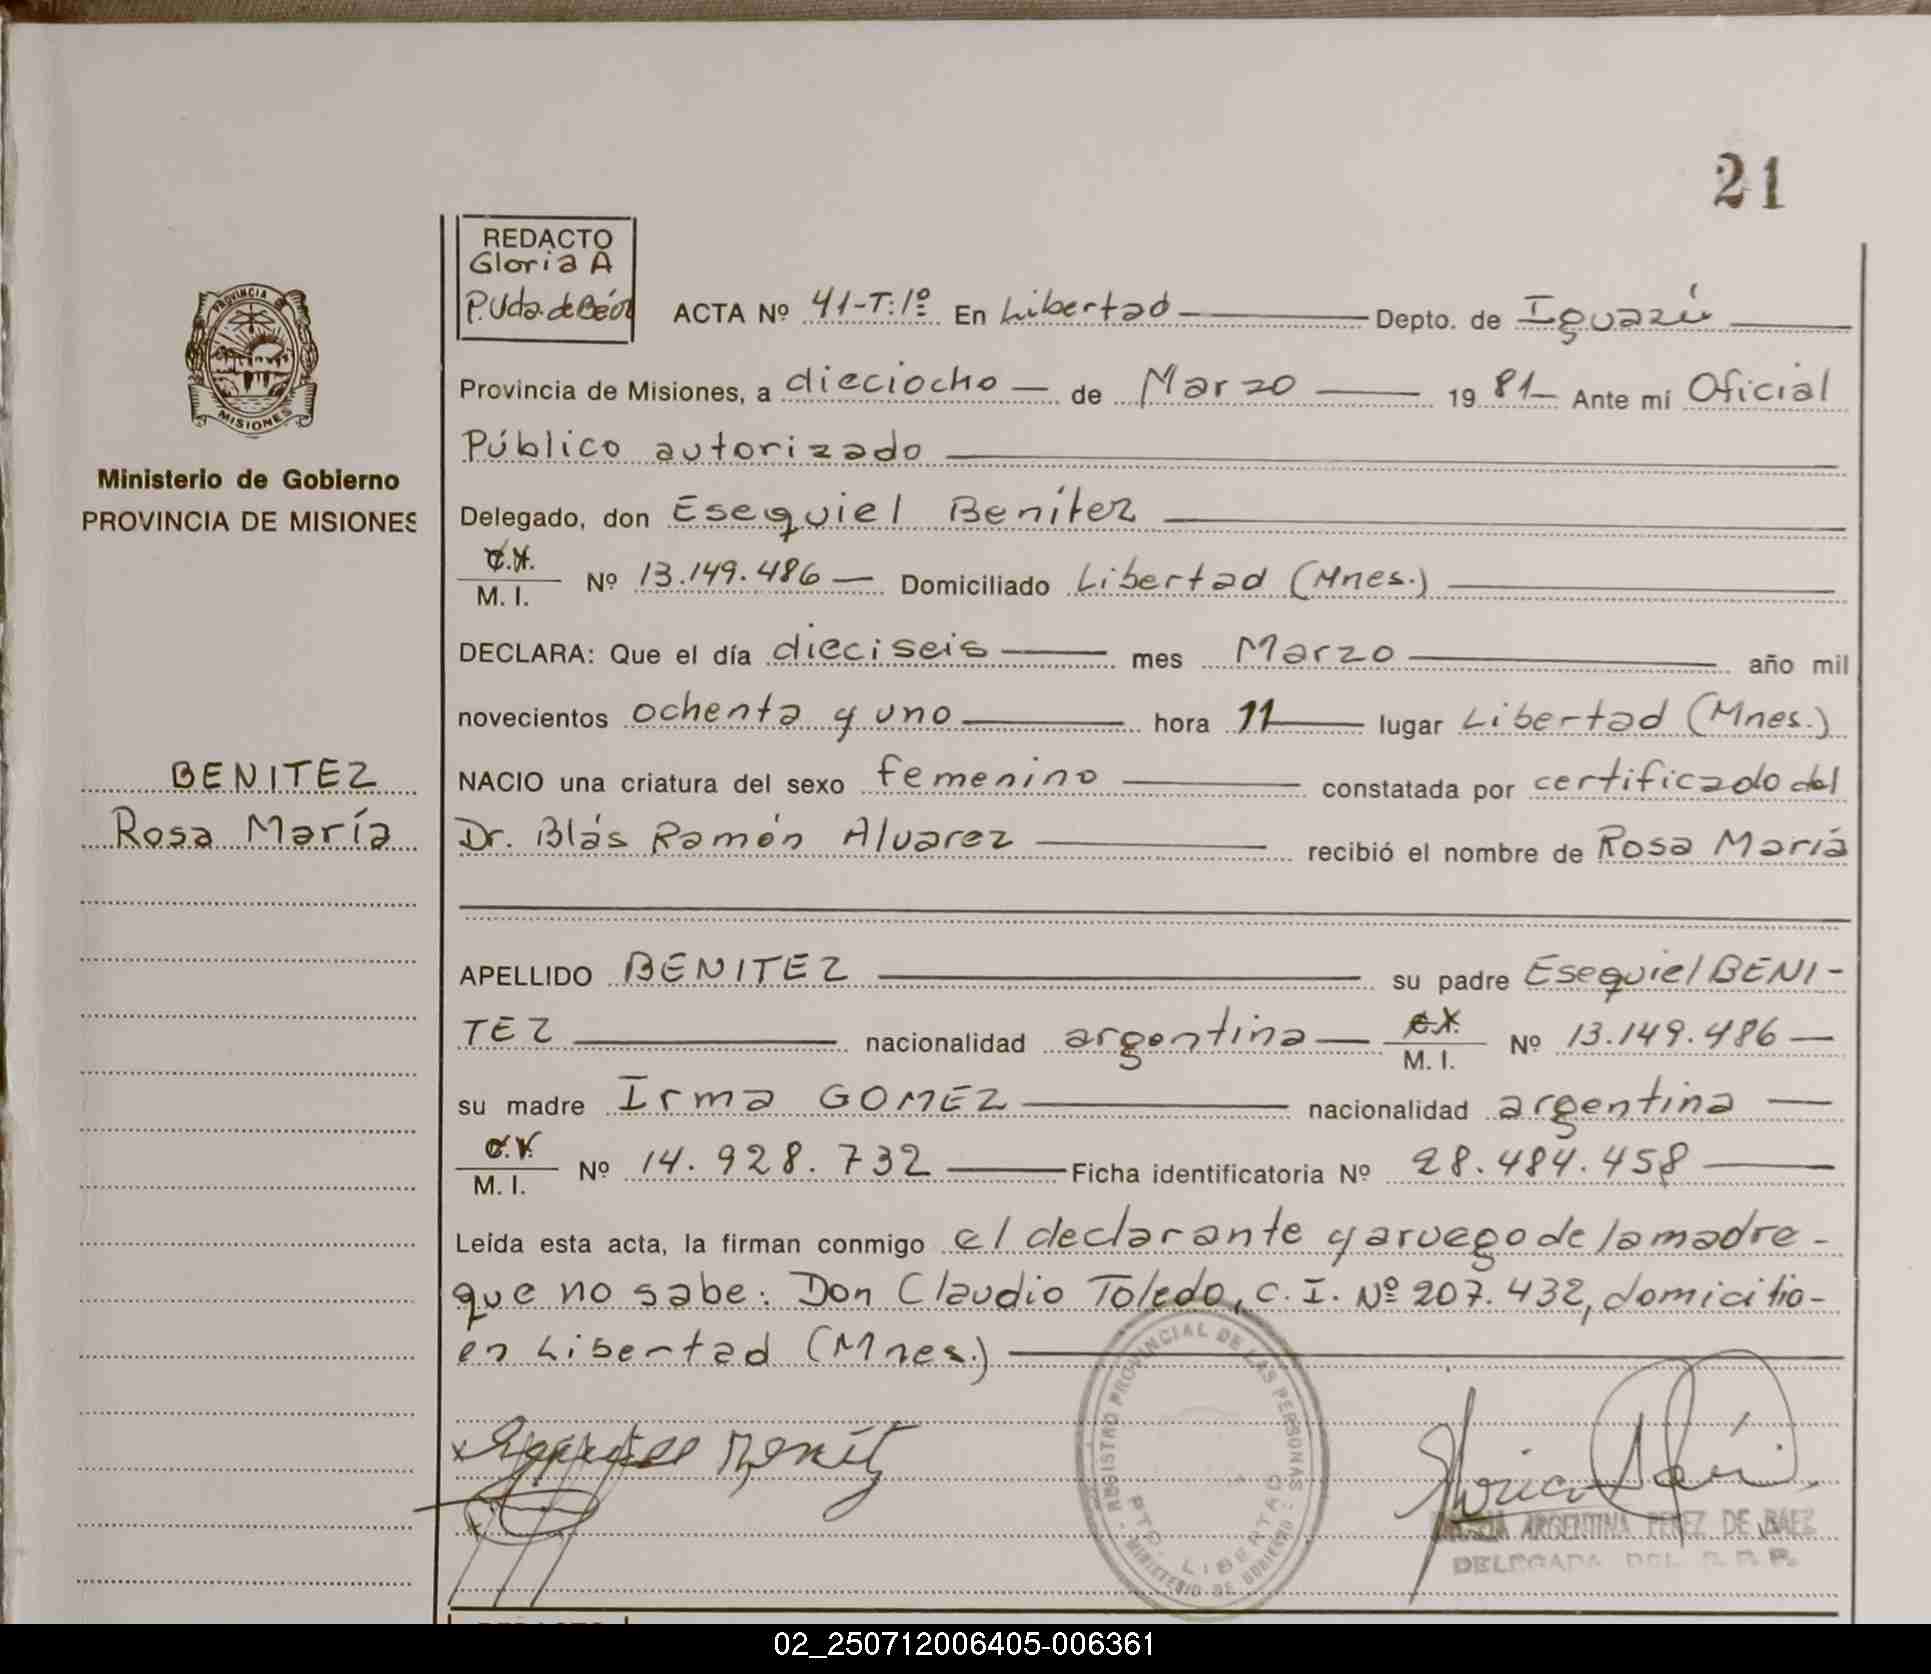 21
REDACTO
Gloria A
P. Vda. de Báez
ACTA Nº 41-T:1º En Libertad Depto. de Iguazú
PROVINCIA
MISIONES
Provincia de Misiones, a dieciocho de Marzo 1981 Ante mí Oficial
Público autorizado
Ministerio de Gobierno
PROVINCIA DE MISIONES
Delegado, don Esequiel Benítez
M. I. Nº 13.149.486 Domiciliado Libertad (Mnes.)
DECLARA: Que el día dieciseis mes Marzo año mil
novecientos ochenta y uno hora 11 lugar Libertad (Mnes.)
BENITEZ
Rosa María
NACIO una criatura del sexo femenino constatada por certificado del
Dr. Blás Ramón Alvarez recibió el nombre de Rosa María
APELLIDO BENITEZ su padre Esequiel BENI-
TEZ nacionalidad argentina M. I. Nº 13.149.486
su madre Irma GOMEZ nacionalidad argentina
M. I. Nº 14.928.732 Ficha identificatoria Nº 28.484.458
Leída esta acta, la firman conmigo el declarante y a ruego de la madre-
que no sabe: Don Claudio Toledo, C. I. Nº 207.432, domicilio-
en Libertad (Mnes.)
REGISTRO PROVINCIAL DE LAS PERSONAS
PTO. LIBERTAD
MINISTERIO DE GOBIERNO
ARGENTINA PEREZ DE BAEZ
DELEGADA DEL
REDACTO
02_250712006405-006361